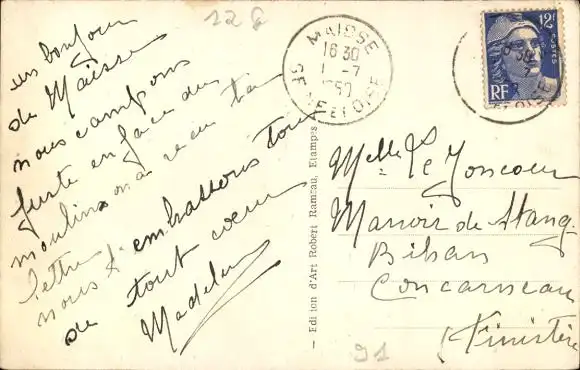 un bonjour
de Maisse
nous campons
juste en face du
moulin on a reçu ta
lettre
nous t'embrassons tous
de tout coeur
Madeleine
12 F
MAISSE
16 30
1 - 7
1950
SEINE ET OISE
12F
POSTES
RF
— Edition d'Art Robert Rameau, Etampes
Melle Le Joncour
Manoir de Stang
Bihan
Concarneau
Finistère
91